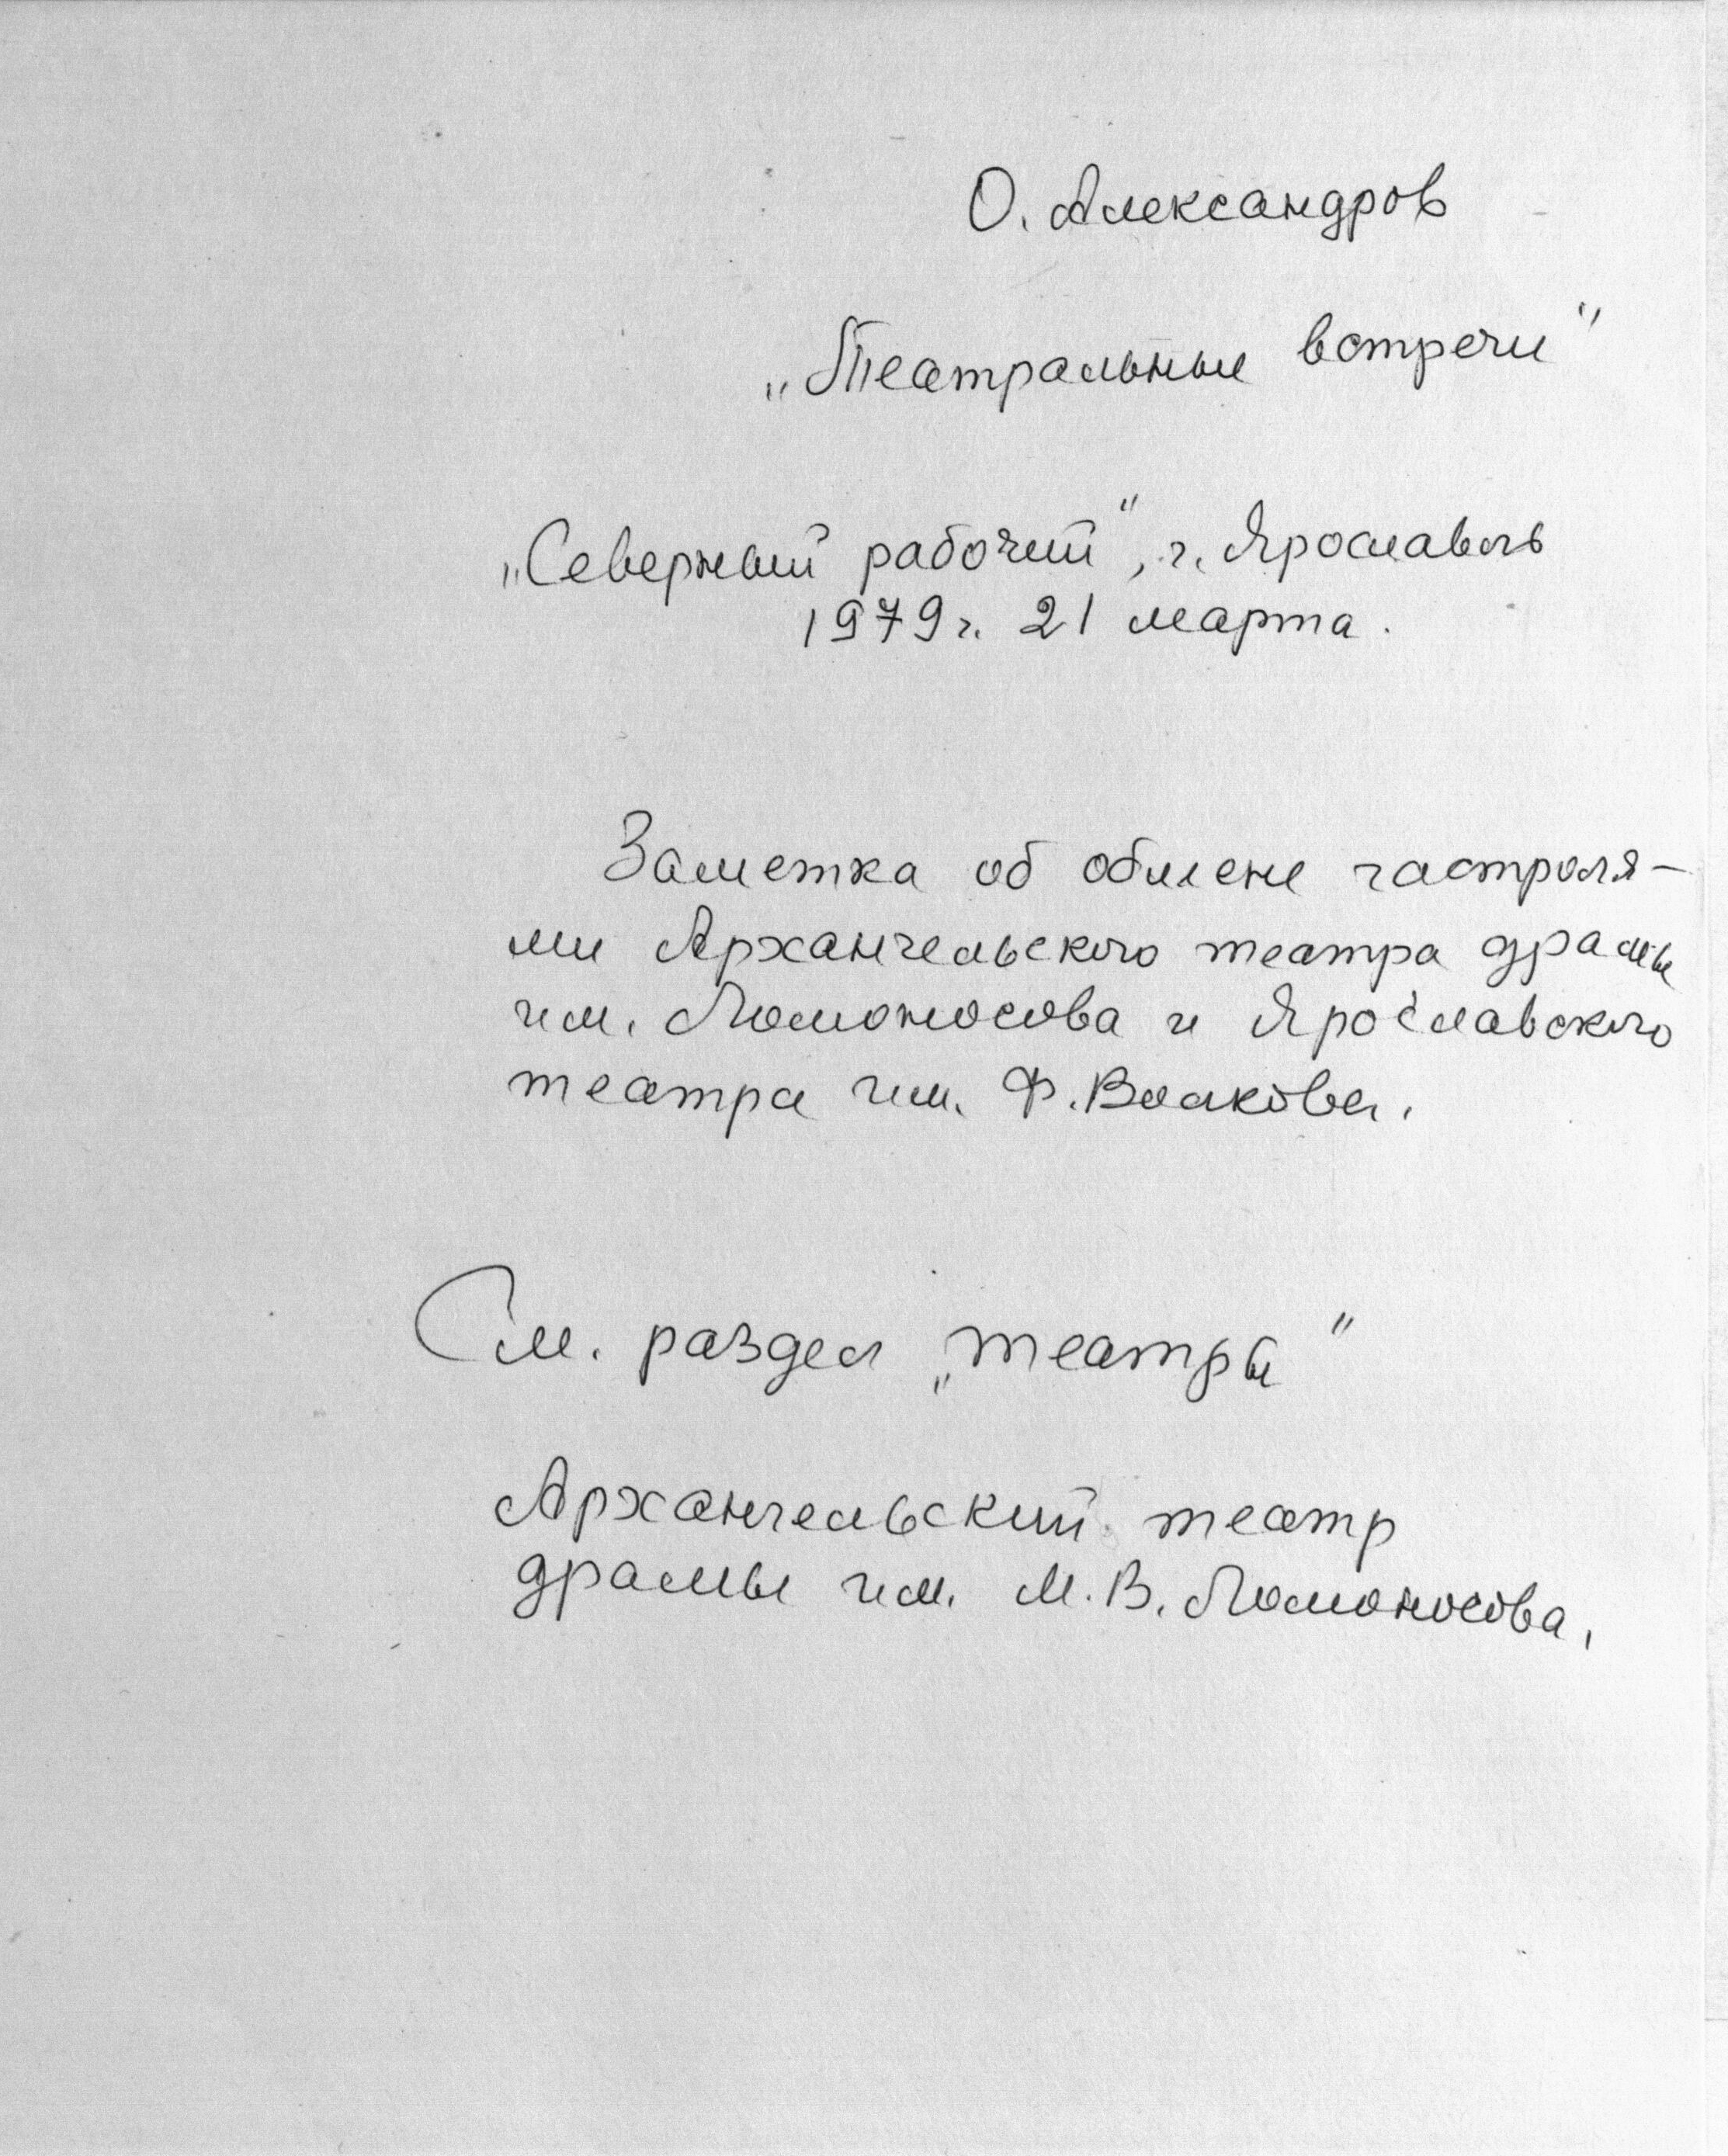 О. Александров
„Театральные встречи"
„Северный рабочий", г. Ярославль
1979 г. 21 марта.
Заметка об обмене гастроля-
ми Архангельского театра драмы
им. Ломоносова и Ярославского
театра им. Ф. Волкова.
См. раздел „театры"
Архангельский театр
драмы им. М. В. Ломоносова.